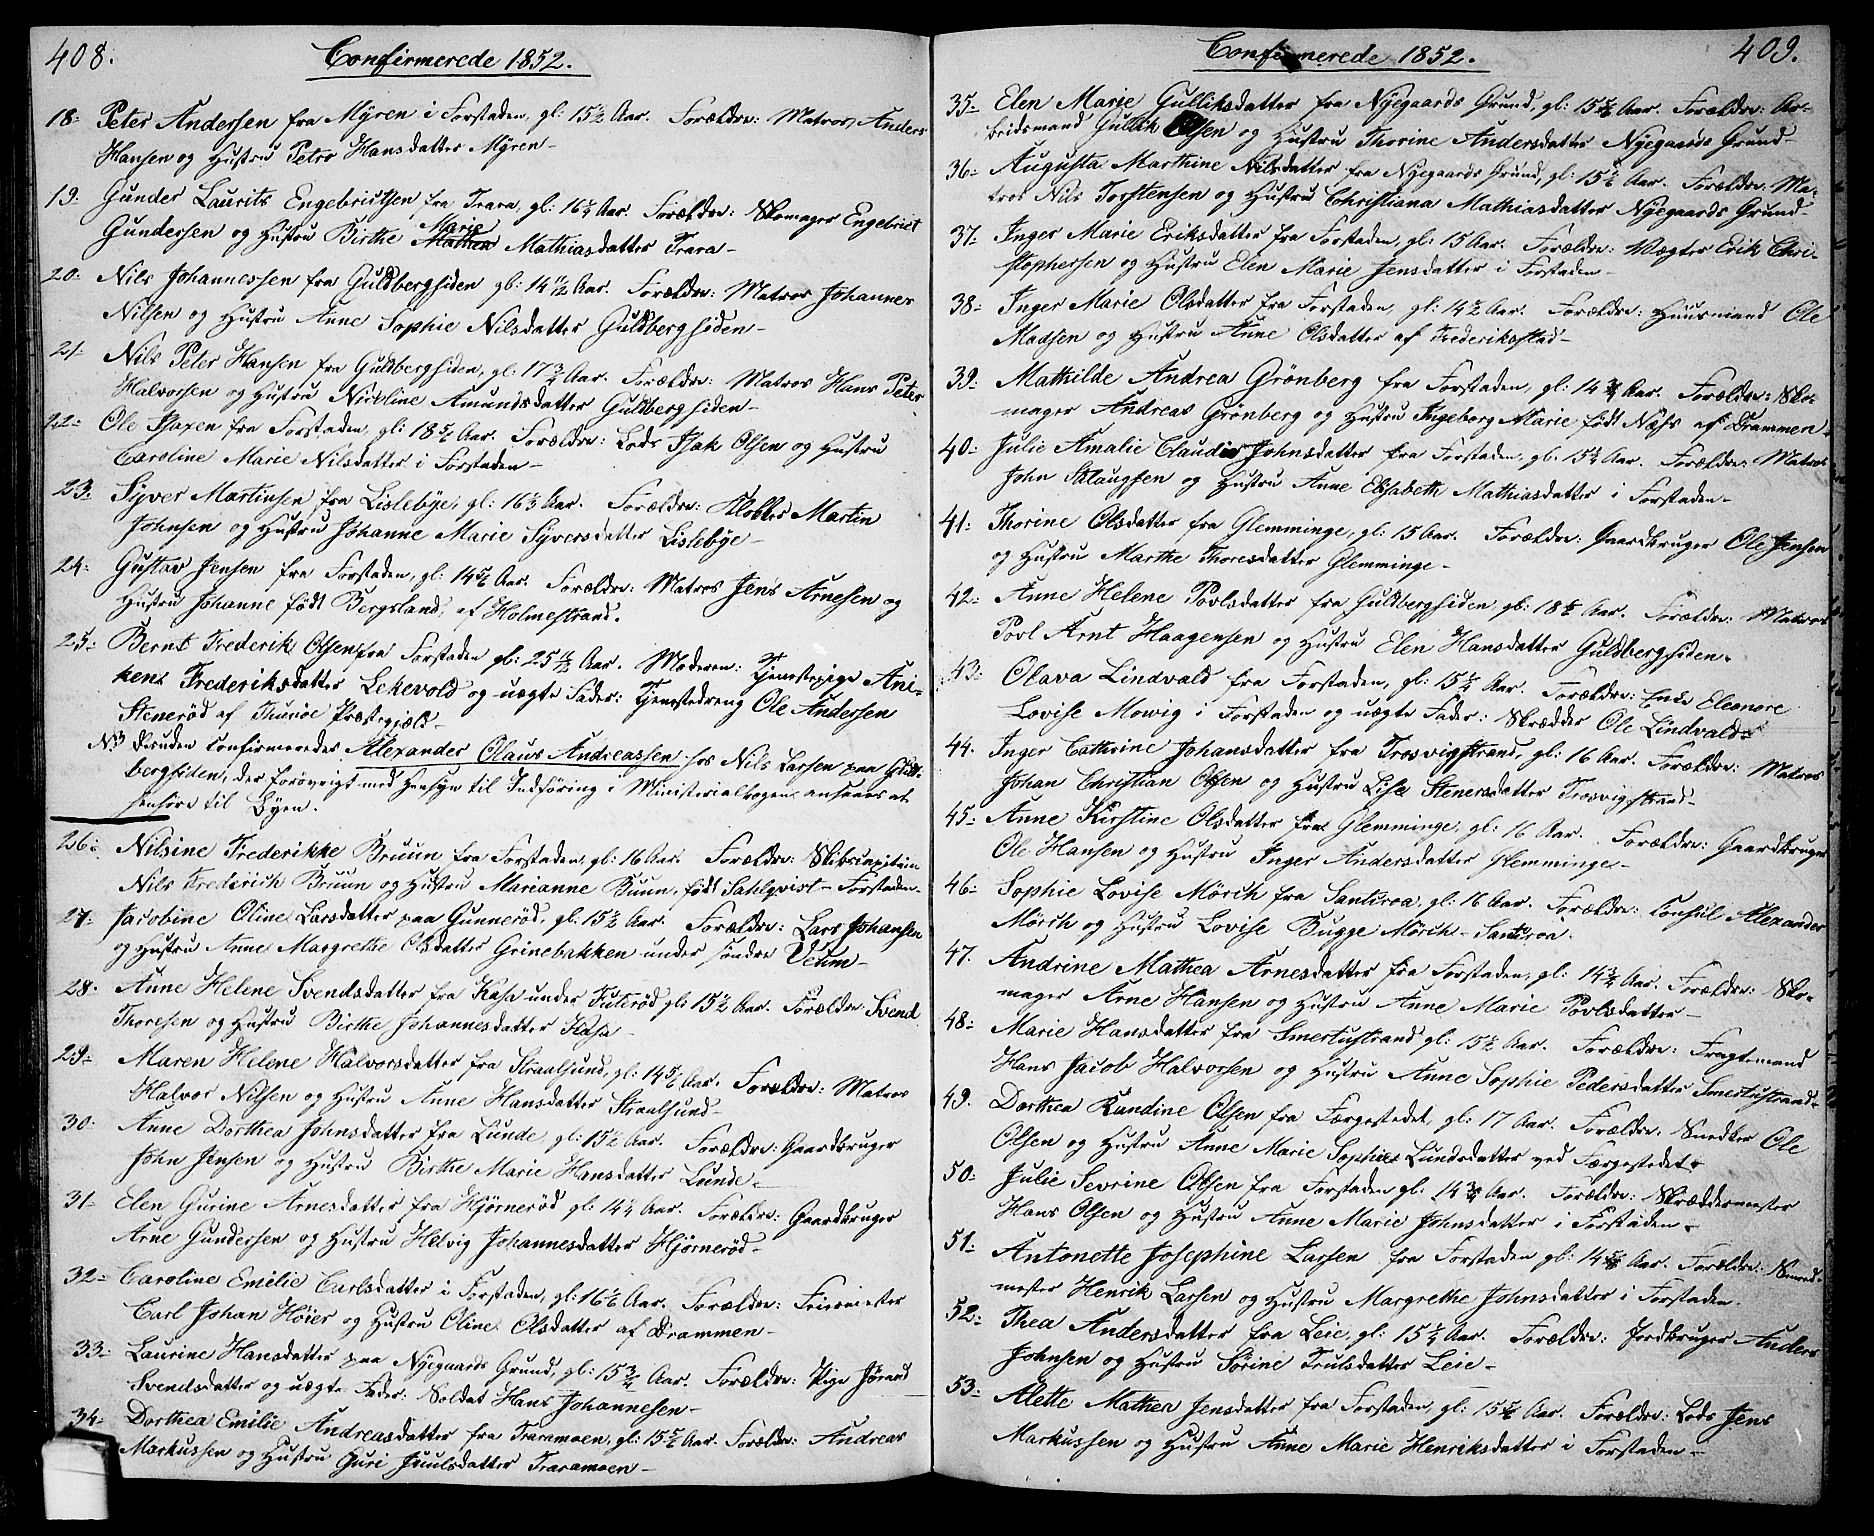 408.
Confirmerede 1852.
18. Peter Andersen fra Myren i Forstaden, gl: 15½ Aar. Forældre: Matros Anders
Hansen og Hustru Petro Hansdatter Myren
19. Gunder Laurits Engebrictsen fra Trara, gl: 16¼ Aar. Forældre: Skomager Engebrict
Marie
Gundersen og Hustru Birthe Mathea Mathiasdatter Trara
20. Nils Johannessen fra Guldbergsiden gl: 14 11/12 Aar. Forældre: Matros Johannes
Nilsen og Hustru Anne Sophie Nilsdatter Guldbergsiden
21. Nils Peter Hansen fra Guldbergsiden, gl: 17¾ Aar. Forældre: Matros Hans Peter
Halvorsen og Hustru Nicoline Amundsdatter Guldbergsiden
22. Ole Isaxen fra Forstaden, gl: 18 Aar. Forældre: Lods Isak Olsen og Hustru
Caroline Marie Nilsdatter i Forstaden
23. Syver Martinsen fra Lislebye, gl: 16 Aar. Forældre: Martin
Johnsen og Hustru Johanne Marie Syversdatter Lislebye
24. Gustav Jensen fra Forstaden, gl: 14 5/6 Aar. Forældre: Matros Jens Arnesen og
Hustru Johanne født Bergsland, af Holmestrand.
25. Bernt Frederik Olsen fra Forstaden gl: 25 Aar. Moderen: Tjenestepige Ani-
ken Frederiksdatter Lekevold og uægte Fader: Tjenestedreng Ole Andersen
Stenerød af Thunøe Præstegjæld
NB Desuden confirmeredes Alexander Olaus Andreassen hos Nils Larsen paa Guld-
bergsiden, der forøvrigt med Hensyn til Indføring i Ministerialbogen ansees at
henhøre til Byen.
26. Nilsine Frederikke Bruun fra Forstaden, gl: 16 Aar. Forældre: Skibscapitain
Nils Frederich Bruun og Hustru Marianne Buun, født Sahlqvist - Forstaden
27. Jacobine Oline Larsdatter paa Gunnerød, gl: 15½ Aar. Forældre: Lars Johansen
og Hustru Anne Margrethe Olsdatter Grinebakken under søndre Veum
28. Anne Helene Svendsdatter fra Kasa under Tuterød gl: 15½ Aar. Forældre: Svend
Thoresen og Hustru Birthe Johannesdatter Kasa
29. Maren Helene Halvorsdatter fra Straalsund, gl: 14 5/6 Aar. Forældre: Matros
Halvor Nilsen og Hustru Anne Hansdatter Straalsund
30. Anne Dorthea Johnsdatter fra Lunde, gl: 15½ Aar. Forældre: Gaardbruger
John Jensen og Hustru Birthe Marie Hansdatter Lunde
31. Elen Gurine Arnesdatter fra Hjørnerød gl: 14¼ Aar. Forældre: Gaardbruger
Arne Gundersen og Hustru Helvig Johannesdatter Hjørnerød
32. Caroline Emilie Carlsdatter i Forstaden, gl: 16 Aar. Forældre: Feiermester
Carl Johan Höier og Hustru Oline Olsdatter af Drammen
33. Laurine Hansdatter paa Nyegaards Grund, gl: 15¾ Aar. Forældre: Pige Jørand
Svendsdatter og uægte Fader: Soldat Hans Johannesen
34. Dorthea Emilie Andreasdatter fra Traramoen, gl: 15 Aar. Forældre: Andreas
Markussen og Hustru Guri Juulsdatter Traramoen
409.
Confirmerede 1852.
35. Elen Marie Gulliksdatter fra Nyegaards Grund, gl: 15 Aar. Forældre: Ar-
beidsmand Gullik Olsen og Hustru Thorine Andersdatter Nyegaards Grund
36. Augusta Marthine Nilsdatter fra Nyegaards Grund, gl: 15 Aar. Forældre: Ma-
tros Nils Torstensen og Hustru Christiana Mathiasdatter Nyegaards Grund
37. Inger Marie Eriksdatter fra Forstaden, gl: 15 Aar. Forældre: Vægter Erik Chri-
stophersen og Hustru Elen Marie Jensdatter i Forstaden
38. Inger Marie Olsdatter fra Forstaden, gl: 14½ Aar. Forældre: Huusmand Ole
Madsen og Hustru Anne Olsdatter af Frederiksstad
39. Mathilde Andrea Grønberg fra Forstaden, gl: 14¾ Aar. Forældre: Sko-
mager Andreas Grønberg og Hustru Ingeborg Marie født Næss af Drammen
40. Julie Amalie Claudia Johnsdatter fra Forstaden, gl: 15¼ Aar. Forældre: Matros
John Aslaugsen og Hustru Anne Elisabeth Mathiasdatter i Forstaden
41. Thorine Olsdatter fra Glemminge, gl: 15 Aar. Forældre: Gaardbruger Ole Jensen
og Hustru Marthe Thoresdatter Glemminge
42. Anne Helene Povlsdatter fra Guldbergsiden, gl: 18 Aar. Forældre: Matros
Povl Arnt Haagensen og Hustru Elen Hansdatter Guldbergsiden.
43. Olava Lindvald fra Forstaden, gl: 15¼ Aar. Forældre: Enke Eleonore
Lovise Mowig i Forstaden og uægte Fader: Skrædder Ole Lindvald
44. Inger Cathrine Johansdatter fra Trosvigstrand, gl: 16 Aar. Forældre: Matros
Johan Christian Olsen og Hustru Lise Stenersdatter Trosvigstrand
45. Anne Kirstine Olsdatter fra Glemminge, gl: 16 Aar. Forældre: Gaardbruger
Ole Hansen og Hustru Inger Andersdatter Glemminge
46. Sophie Lovise Mörch fra Santiroa, gl: 16 Aar. Forældre: Consul Alexander
Mörch og Hustru Lovise Bugge Mörch - Santiroa.
47. Andrine Mathea Arnesdatter fra Forstaden, gl: 14¾ Aar. Forældre: Sko-
mager Arne Hansen og Hustru Anne Marie Povlsdatter
48. Marie Hansdatter fra Smertustrand gl: 15½ Aar. Forældre: Fragtemand
Hans Jacob Halvorsen og Hustru Anne Sophie Pedersdatter Smertustrand
49. Dorthea Randine Olsen fra Færgestedet, gl: 17 Aar. Forældre: Snedker Ole
Olsen og Hustru Anne Marie Sophie Lundsdatter ved Færgestedet
50. Julie Sevrine Olsen fra Forstaden gl: 14¾ Aar. Forældre: Skræddermester
Hans Olsen og Hustru Anne Marie Johnsdatter i Forstaden
51. Antonette Josephine Larsen fra Forstaden gl: 14 Aar. Forældre: Smed-
mester Henrik Larsen og Hustru Margrethe Johnsdatter i Forstaden.
52. Thea Andersdatter fra Leie, gl: 15¼ Aar. Forældre: Jordbruger Anders
Johnsen og Hustru Sørine Trulsdatter Leie
53. Alette Mathea Jensdatter fra Forstaden, gl: 15 Aar. Forældre: Lods Jens
Markussen og Hustru Anne Marie Henriksdatter i Forstaden